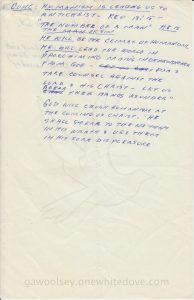 CONC. HUMANISM IS LEADING US TO
ANTICHRIST - REV 13:18 -
"THE NUMBER OF A MAN" HE IS
HE WILL BE THE CLIMAX OF HUMANISM,
HE WILL LEAD THE WORLD IN
PROCLAIMING MAN'S INDEPENDENCE
FROM GOD -
TAKE COUNSEL AGAINST THE
LORD & HIS CHRIST - LET US
THEIR BANDS ASUNDER"
GOD WILL CRUSH HUMANISM AT
THE COMING OF CHRIST. HE
SHALL SPEAK TO THEM
IN HIS WRATH & VEX THEM
IN HIS SORE DISPLEASURE
gawoolsey.onewhitedove.com